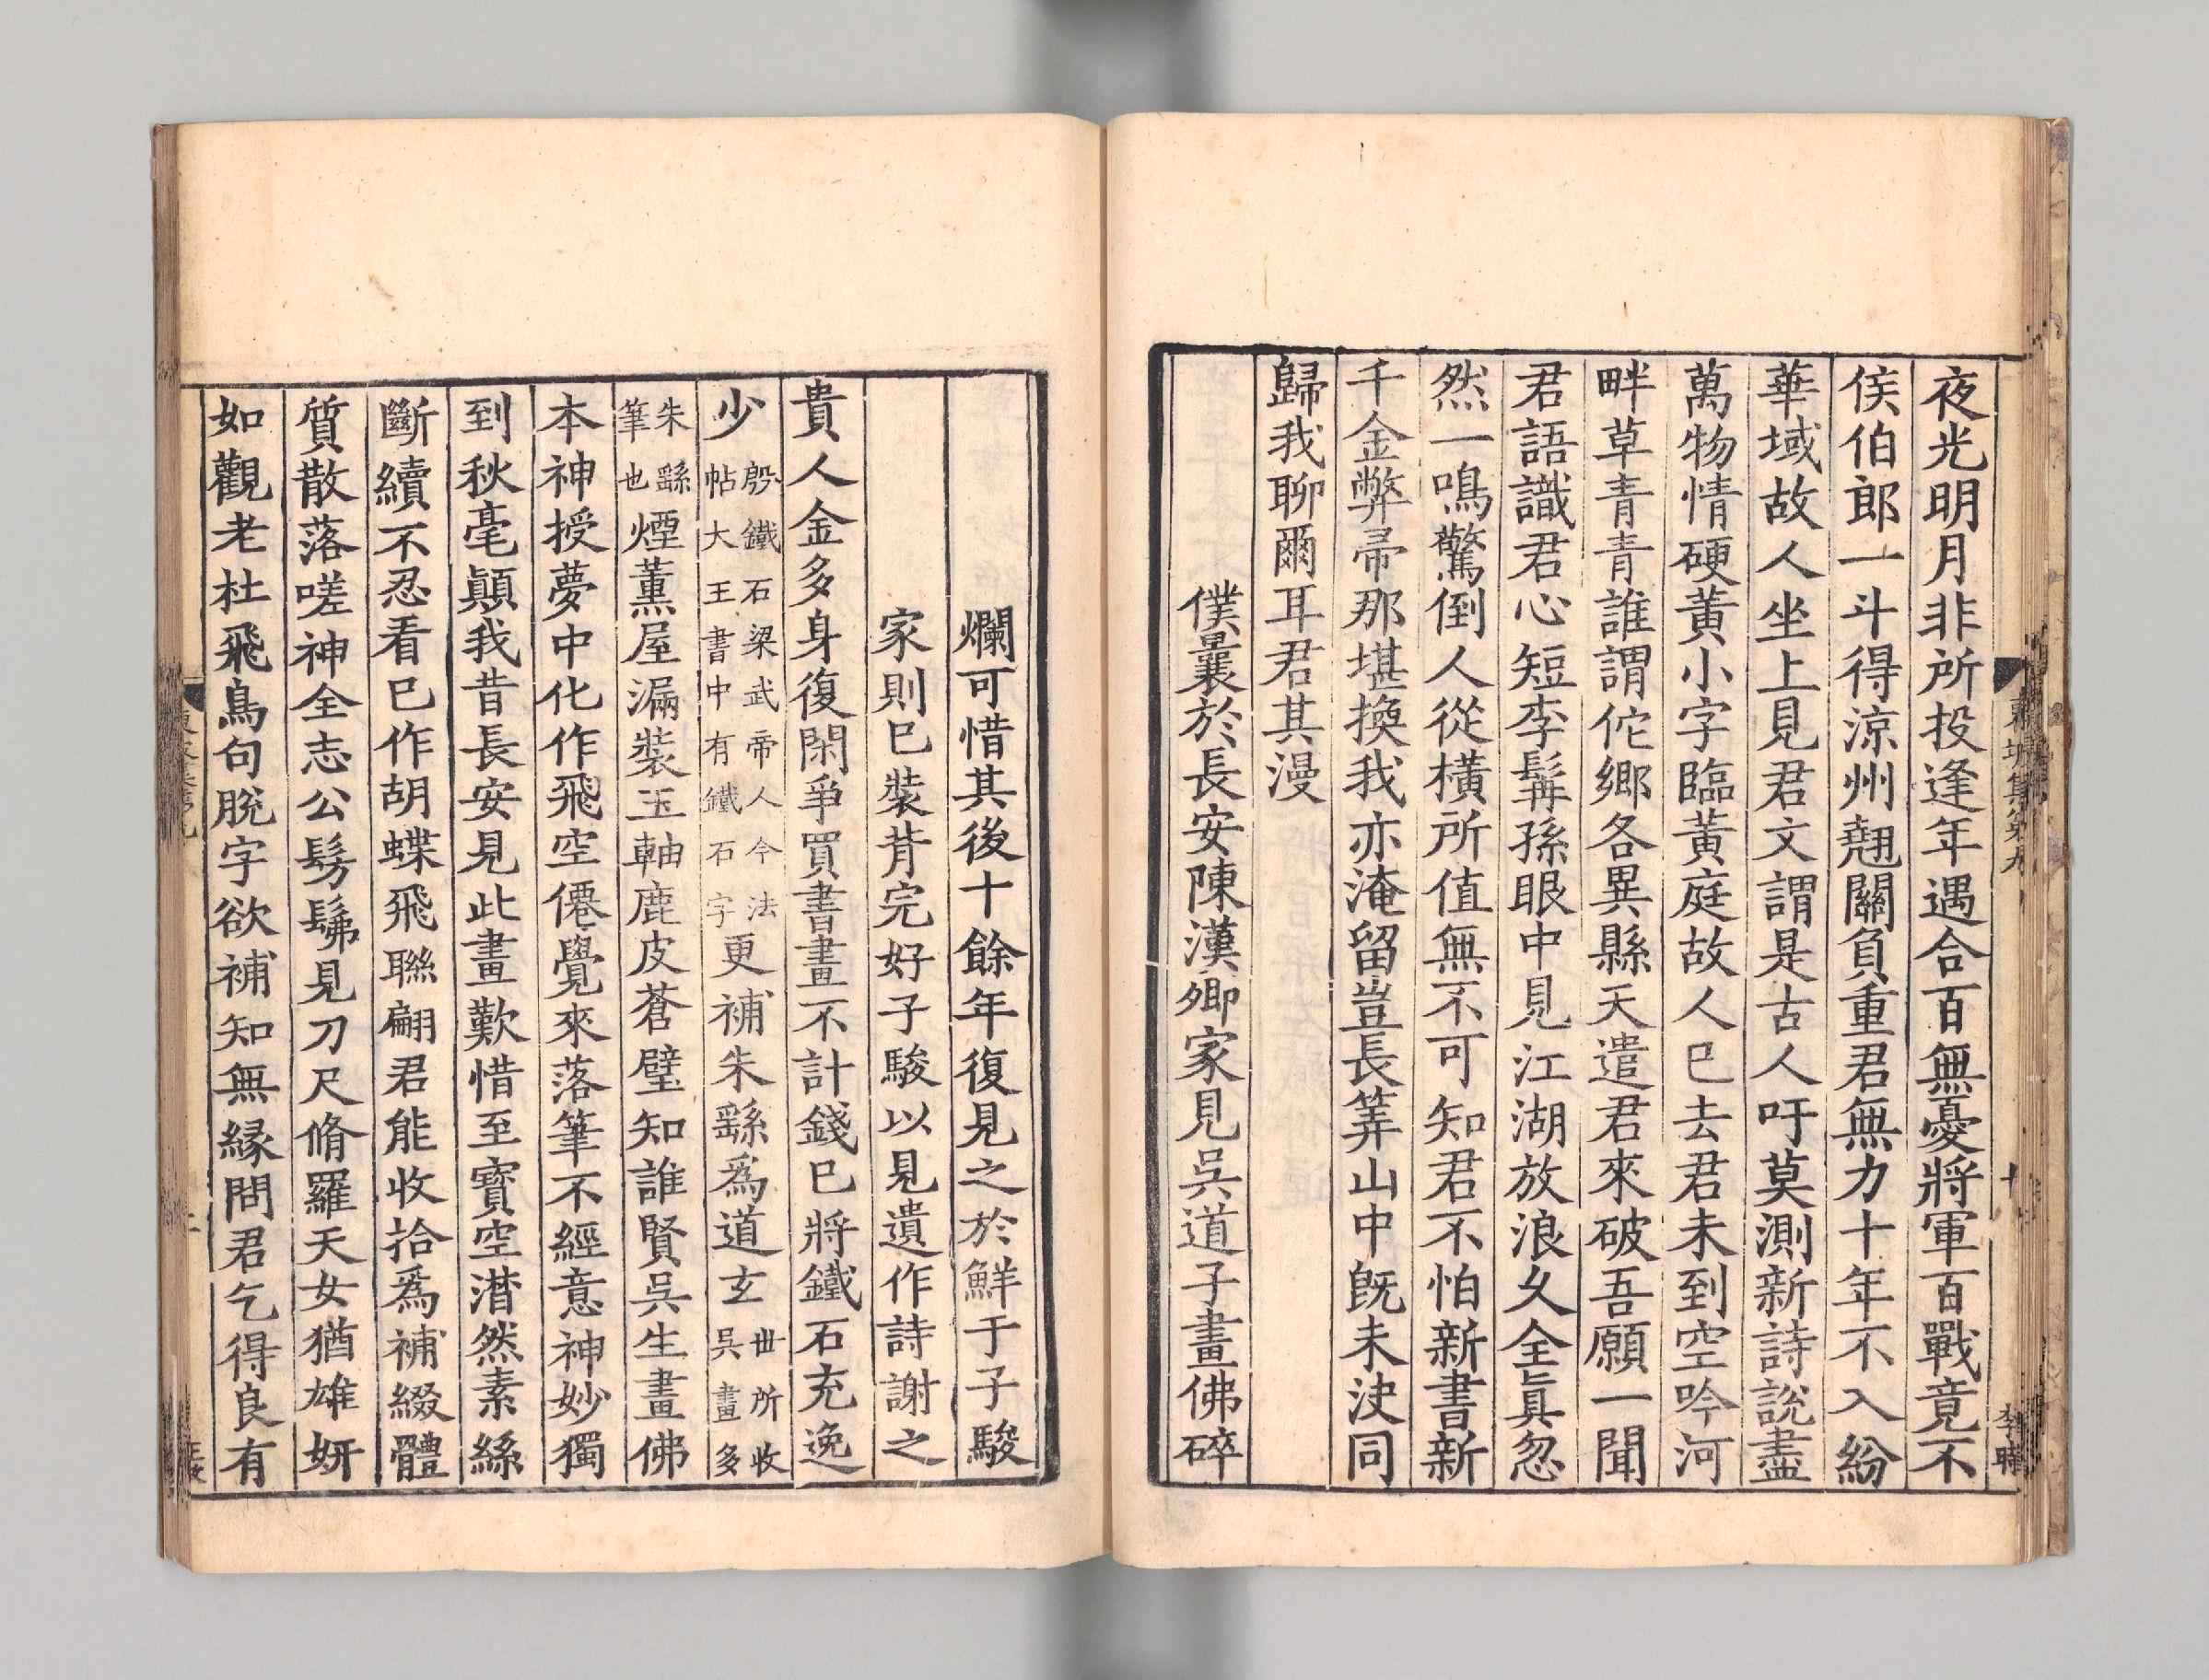 夜光明月非所投逢年遇合百無憂將軍百戰竟不
侯伯郎一斗得涼州翹關負重君無力十年不入紛
華域故人坐上見君文謂是古人吁莫測新詩說盡
萬物情硬黃小字臨黃庭故人已去君未到空吟河
畔草青青誰謂佗鄉各異縣天遣君來破吾願一聞
君語識君心短李髯孫眼中見江湖放浪久全眞忽
然一鳴驚倒人從橫所值無不可知君不怕新書新
千金弊帚那堪換我亦淹留豈長筭山中旣未决同
歸我聊爾耳君其漫
僕曩於長安陳漢卿家見吳道子畫佛碎
爛可惜其後十餘年復見之於鮮于子駿
家則已裝背完好子駿以見遺作詩謝之
貴人金多身復閑爭買書畫不計錢已將鐵石充逸
少殷鐵石梁武帝人今法帖大王書中有鐵石字更補朱繇爲道玄世所收吳畫多
朱繇筆也煙薰屋漏裝玉軸鹿皮蒼璧知誰賢吳生畫佛
本神授夢中化作飛空僊覺來落筆不經意神妙獨
到秋毫顚我昔長安見此畫歎惜至寶空潸然素絲
斷續不忍看已作胡蝶飛聯翩君能收拾爲補綴體
質散落嗟神全志公髣髴見刀尺脩羅天女猶雄妍
如觀老杜飛鳥句脫字欲補知無緣問君乞得良有